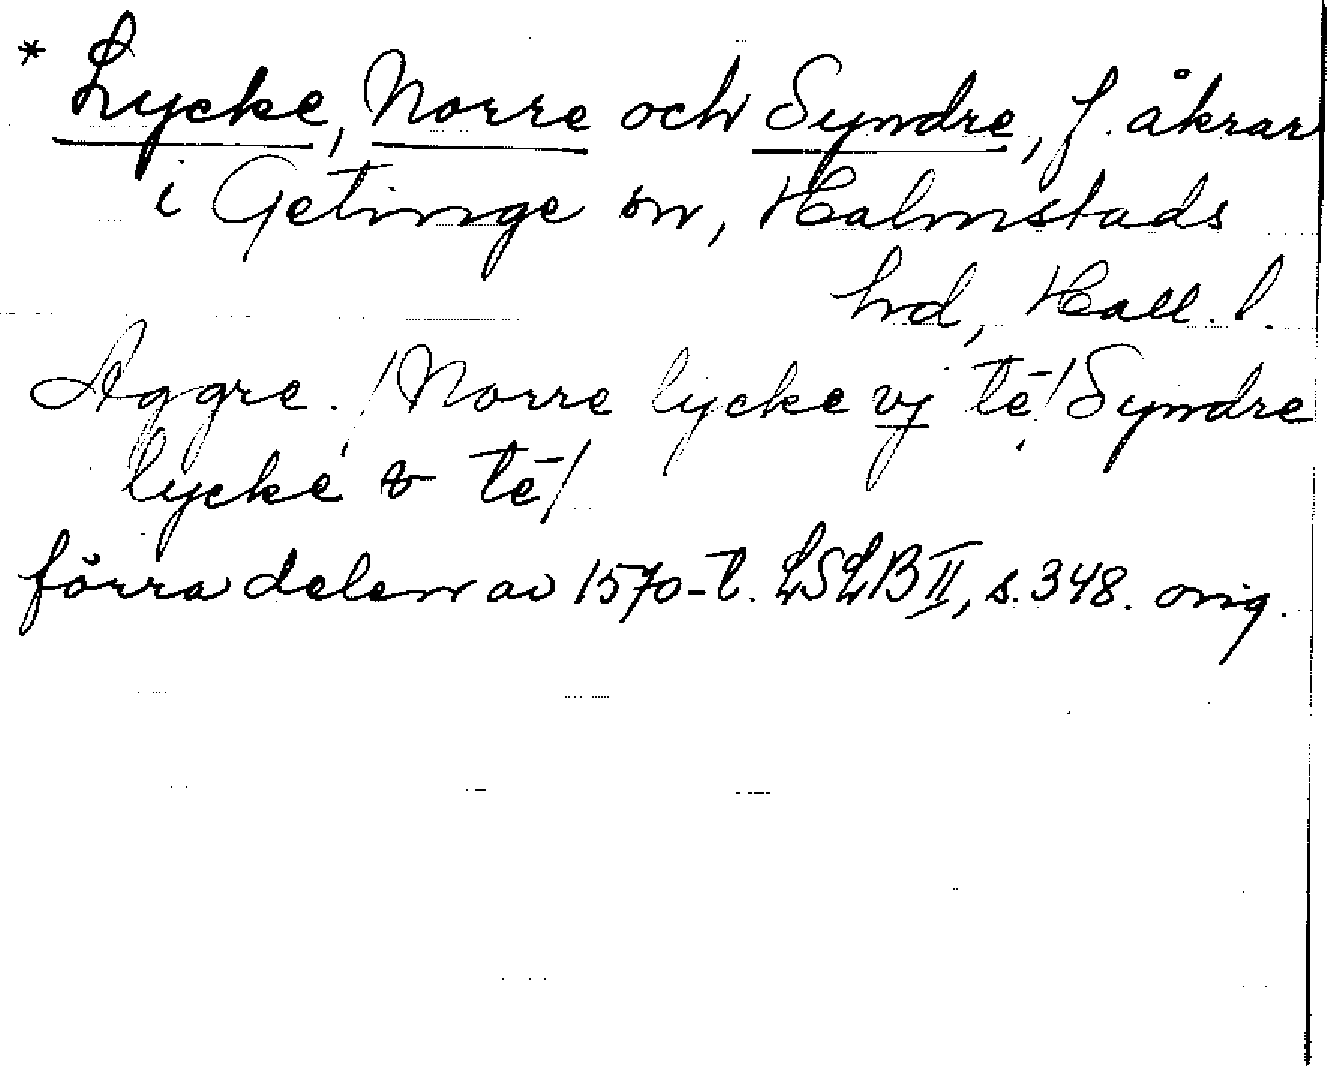 * Lycke, Norre och Syndre, f. åkrar
i Getinge sn, Halmstads
hrd, Hall. l.
Aggre. / Norre lycke vj tē / Syndre
lycke v tē /
förra delen av 1570-t. LSLB II, s. 348. orig.